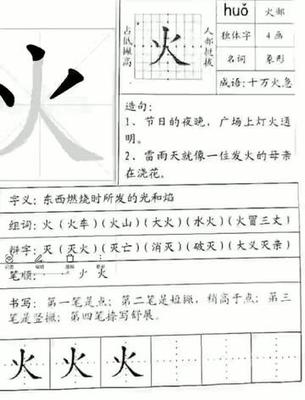 huǒ
火部
独体字
4画
名词
象形
成语:十万火急
占低撇高
火
人部挺拔
火
造句:
1、节日的夜晚,广场上灯火透明。
2、雷雨天就像一位发火的母亲在浇花。
字义:东西燃烧时所发的光和焰
组词:火(火车)(火山)(大火)(水火)(火冒三丈)
辩字:灭(灭火)(灭亡)(消灭)(破灭)(大义灭亲)
笔顺:
书写:第一笔是点;第二笔是短撇,稍高于点;第三笔是竖撇;第四笔捺写舒展。
火 火 火